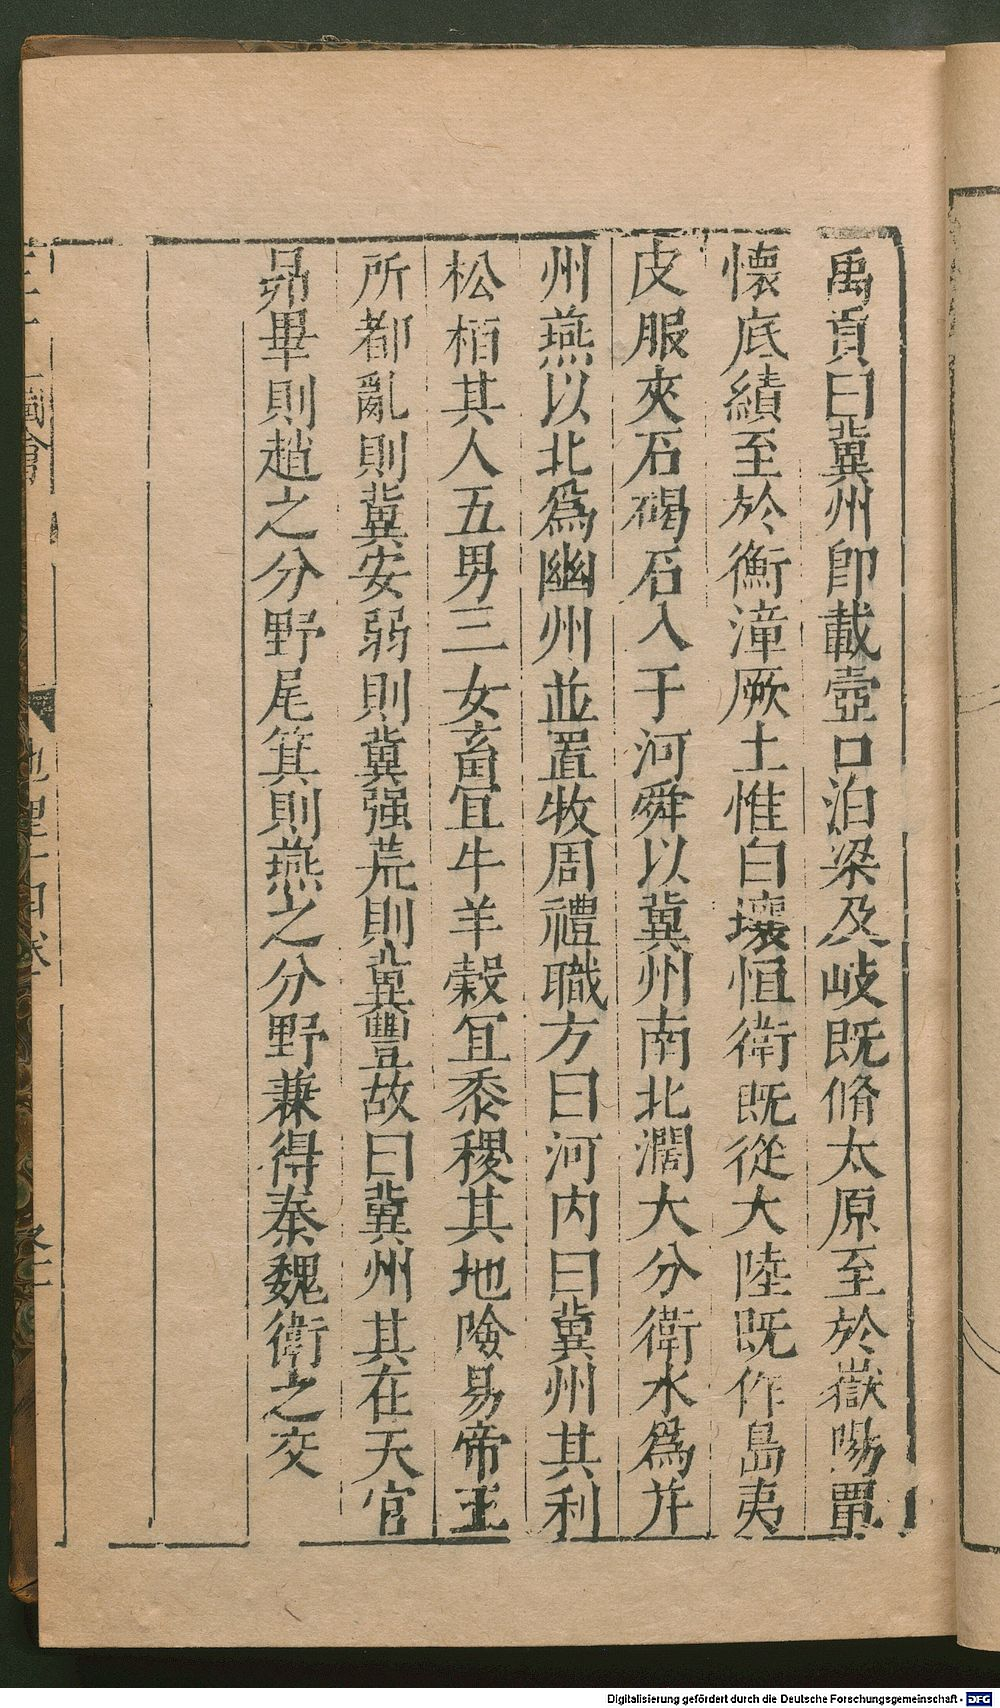 禹貢曰冀州卽載壺口泊梁及岐既脩太原至於嶽陽覃
懷底績至於衡漳厥土惟白壤恒衛既從大陸既作島夷
皮服夾石碣石入于河舜以冀州南北濶大分衛水爲并
州燕以北爲幽州並置牧周禮職方曰河内曰冀州其利
松栢其人五男三女畜宜牛羊穀宜黍稷其地險易帝王
所都亂則冀安弱則冀强荒則冀豐故曰冀州其在天官
昴畢則趙之分野尾箕則燕之分野兼得秦魏衛之交
圖會
地理十四卷
Digitalisierung gefördert durch die Deutsche Forschungsgemeinschaft - DFG